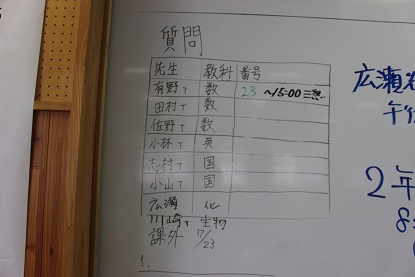 質問
先生 教科 番号
有野T 数 23 ~15:00
田村T 数
佐野T 数
小林T 英
志村T 国
小山T 国
広瀬 化
川崎T 生物
課外 7/23
1.
広瀬
午
2年
8: